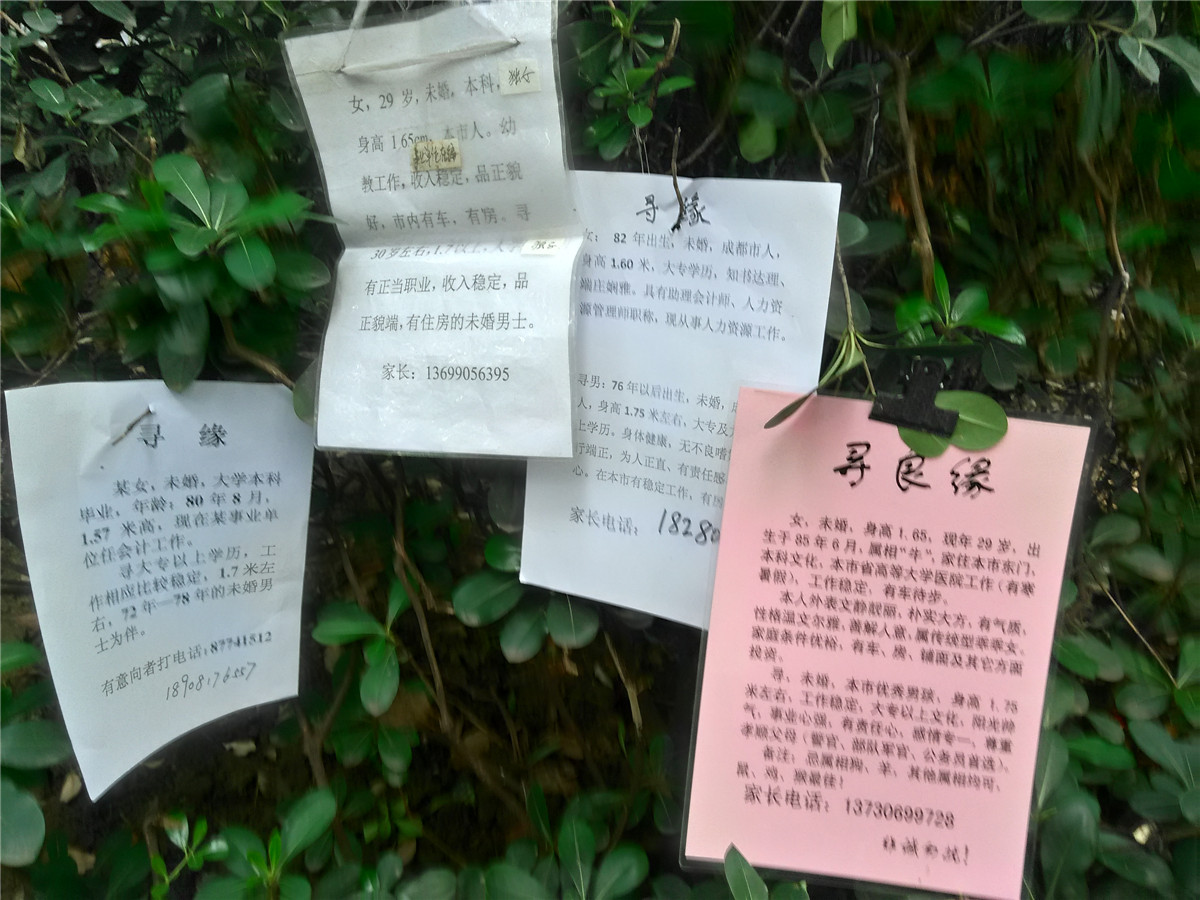 女，29 岁，未婚，本科，独女
身高 165cm，本市人。幼
教工作，收入稳定，品正貌
好，市内有车，有房。寻
30岁左右，1.7以上，大学
有正当职业，收入稳定，品
正貌端，有住房的未婚男士。
家长：13699056395
寻 缘
女： 82 年出生，未婚，成都市人，
身高 1.60 米，大专学历，知书达理、
端庄娴雅。具有助理会计师、人力资
源管理师职称，现从事人力资源工作。
寻男：76 年以后出生，未婚，
人，身高 1.75 米左右，大专及
上学历。身体健康，无不良嗜
行端正，为人正直、有责任感
心。在本市有稳定工作，有房
家长电话： 18280
寻 缘
某女，未婚，大学本科
毕业，年龄：80 年 8 月，
1.57 米高，现在某事业单
位任会计工作。
寻大专以上学历，工
作相应比较稳定，1.7 米左
右，72 年—78 年的未婚男
士为伴。
有意向者打电话：87741512
寻良缘
女，未婚，身高 1.65，现年 29 岁，出
生于 85 年 6 月，属相“牛”，家住本市东门，
本科文化，本市省高等大学医院工作（有寒
暑假），工作稳定，有车待步。
本人外表文静靓丽，朴实大方，有气质，
性格温文尔雅，善解人意，属传统型乖乖女。
家庭条件优裕，有车、房、铺面及其它方面
投资。
寻，未婚，本市优秀男孩，身高 1.75
米左右，工作稳定，大专以上文化，阳光帅
气，事业心强，有责任心，感情专一，尊重
孝顺父母（警官、部队军官、公务员首选）。
备注：忌属相狗、羊，其他属相均可，
鼠、鸡、猴最佳！
家长电话：13730699728